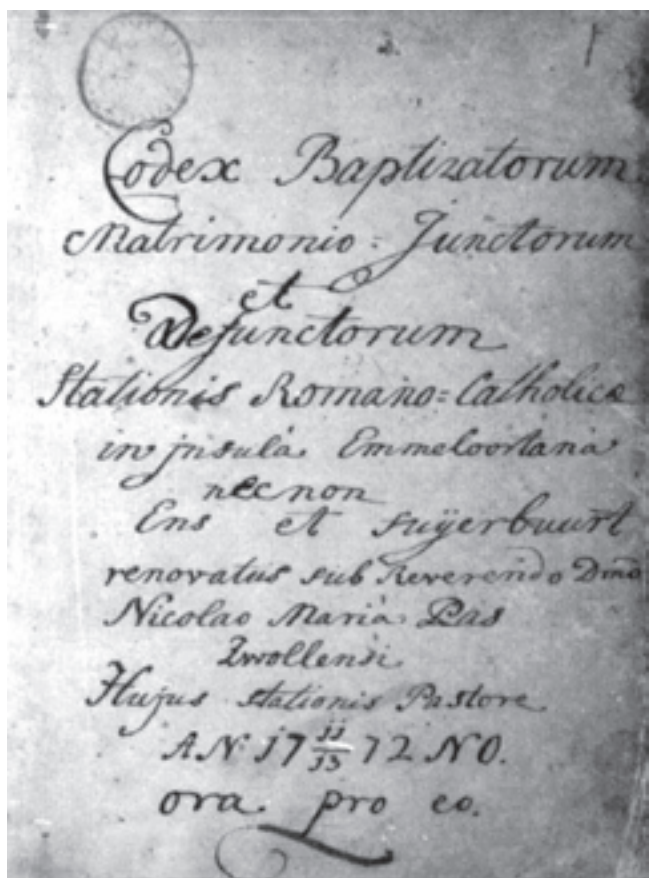 Codex Baptizatorum
Matrimonio = Junctorum
et
Defunctorum
Stationis Romano = Catholicæ
in jnsulâ Emmeloortana
nec non
Ens et Suÿerbuurt
renovatus sub Reverendo Dmõ
Nicolao Mariâ Pas
Zwollensi
Hujus stationis Pastore
AN: 17 11/13 72 NO.
ora pro eo.